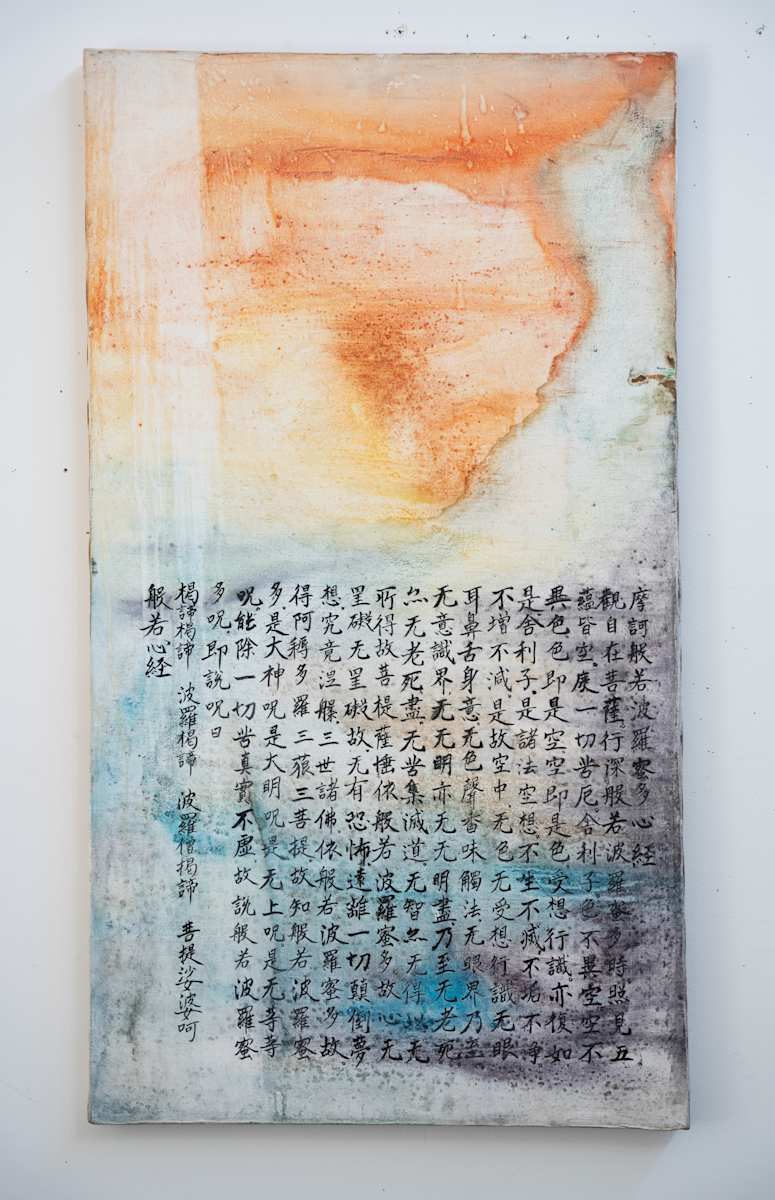 摩訶般若波羅蜜多心経
觀自在菩薩行深般若波羅蜜多時照見五
蘊皆空度一切苦厄舍利子色不異空空不
異色色即是空空即是色受想行識亦復如
是舍利子是諸法空想不生不滅不垢不净
不增不減是故空中无色无受想行識无眼
耳鼻舌身意无色聲香味觸法无眼界乃至
无意識界无无明亦无无明盡乃至无老死
亦无老死盡无苦集滅道无智亦无得以无
所得故菩提薩埵依般若波羅蜜多故心无
罣礙无罣礙故无有恐怖遠離一切顛倒夢
想究竟涅槃三世諸佛依般若波羅蜜多故
得阿耨多羅三藐三菩提故知般若波羅蜜
多是大神呪是大明呪是无上呪是无等等
呪能除一切苦真實不虛故說般若波羅蜜
多呪即說呪曰
揭諦揭諦 波羅揭諦 波羅僧揭諦 菩提娑婆呵
般若心経